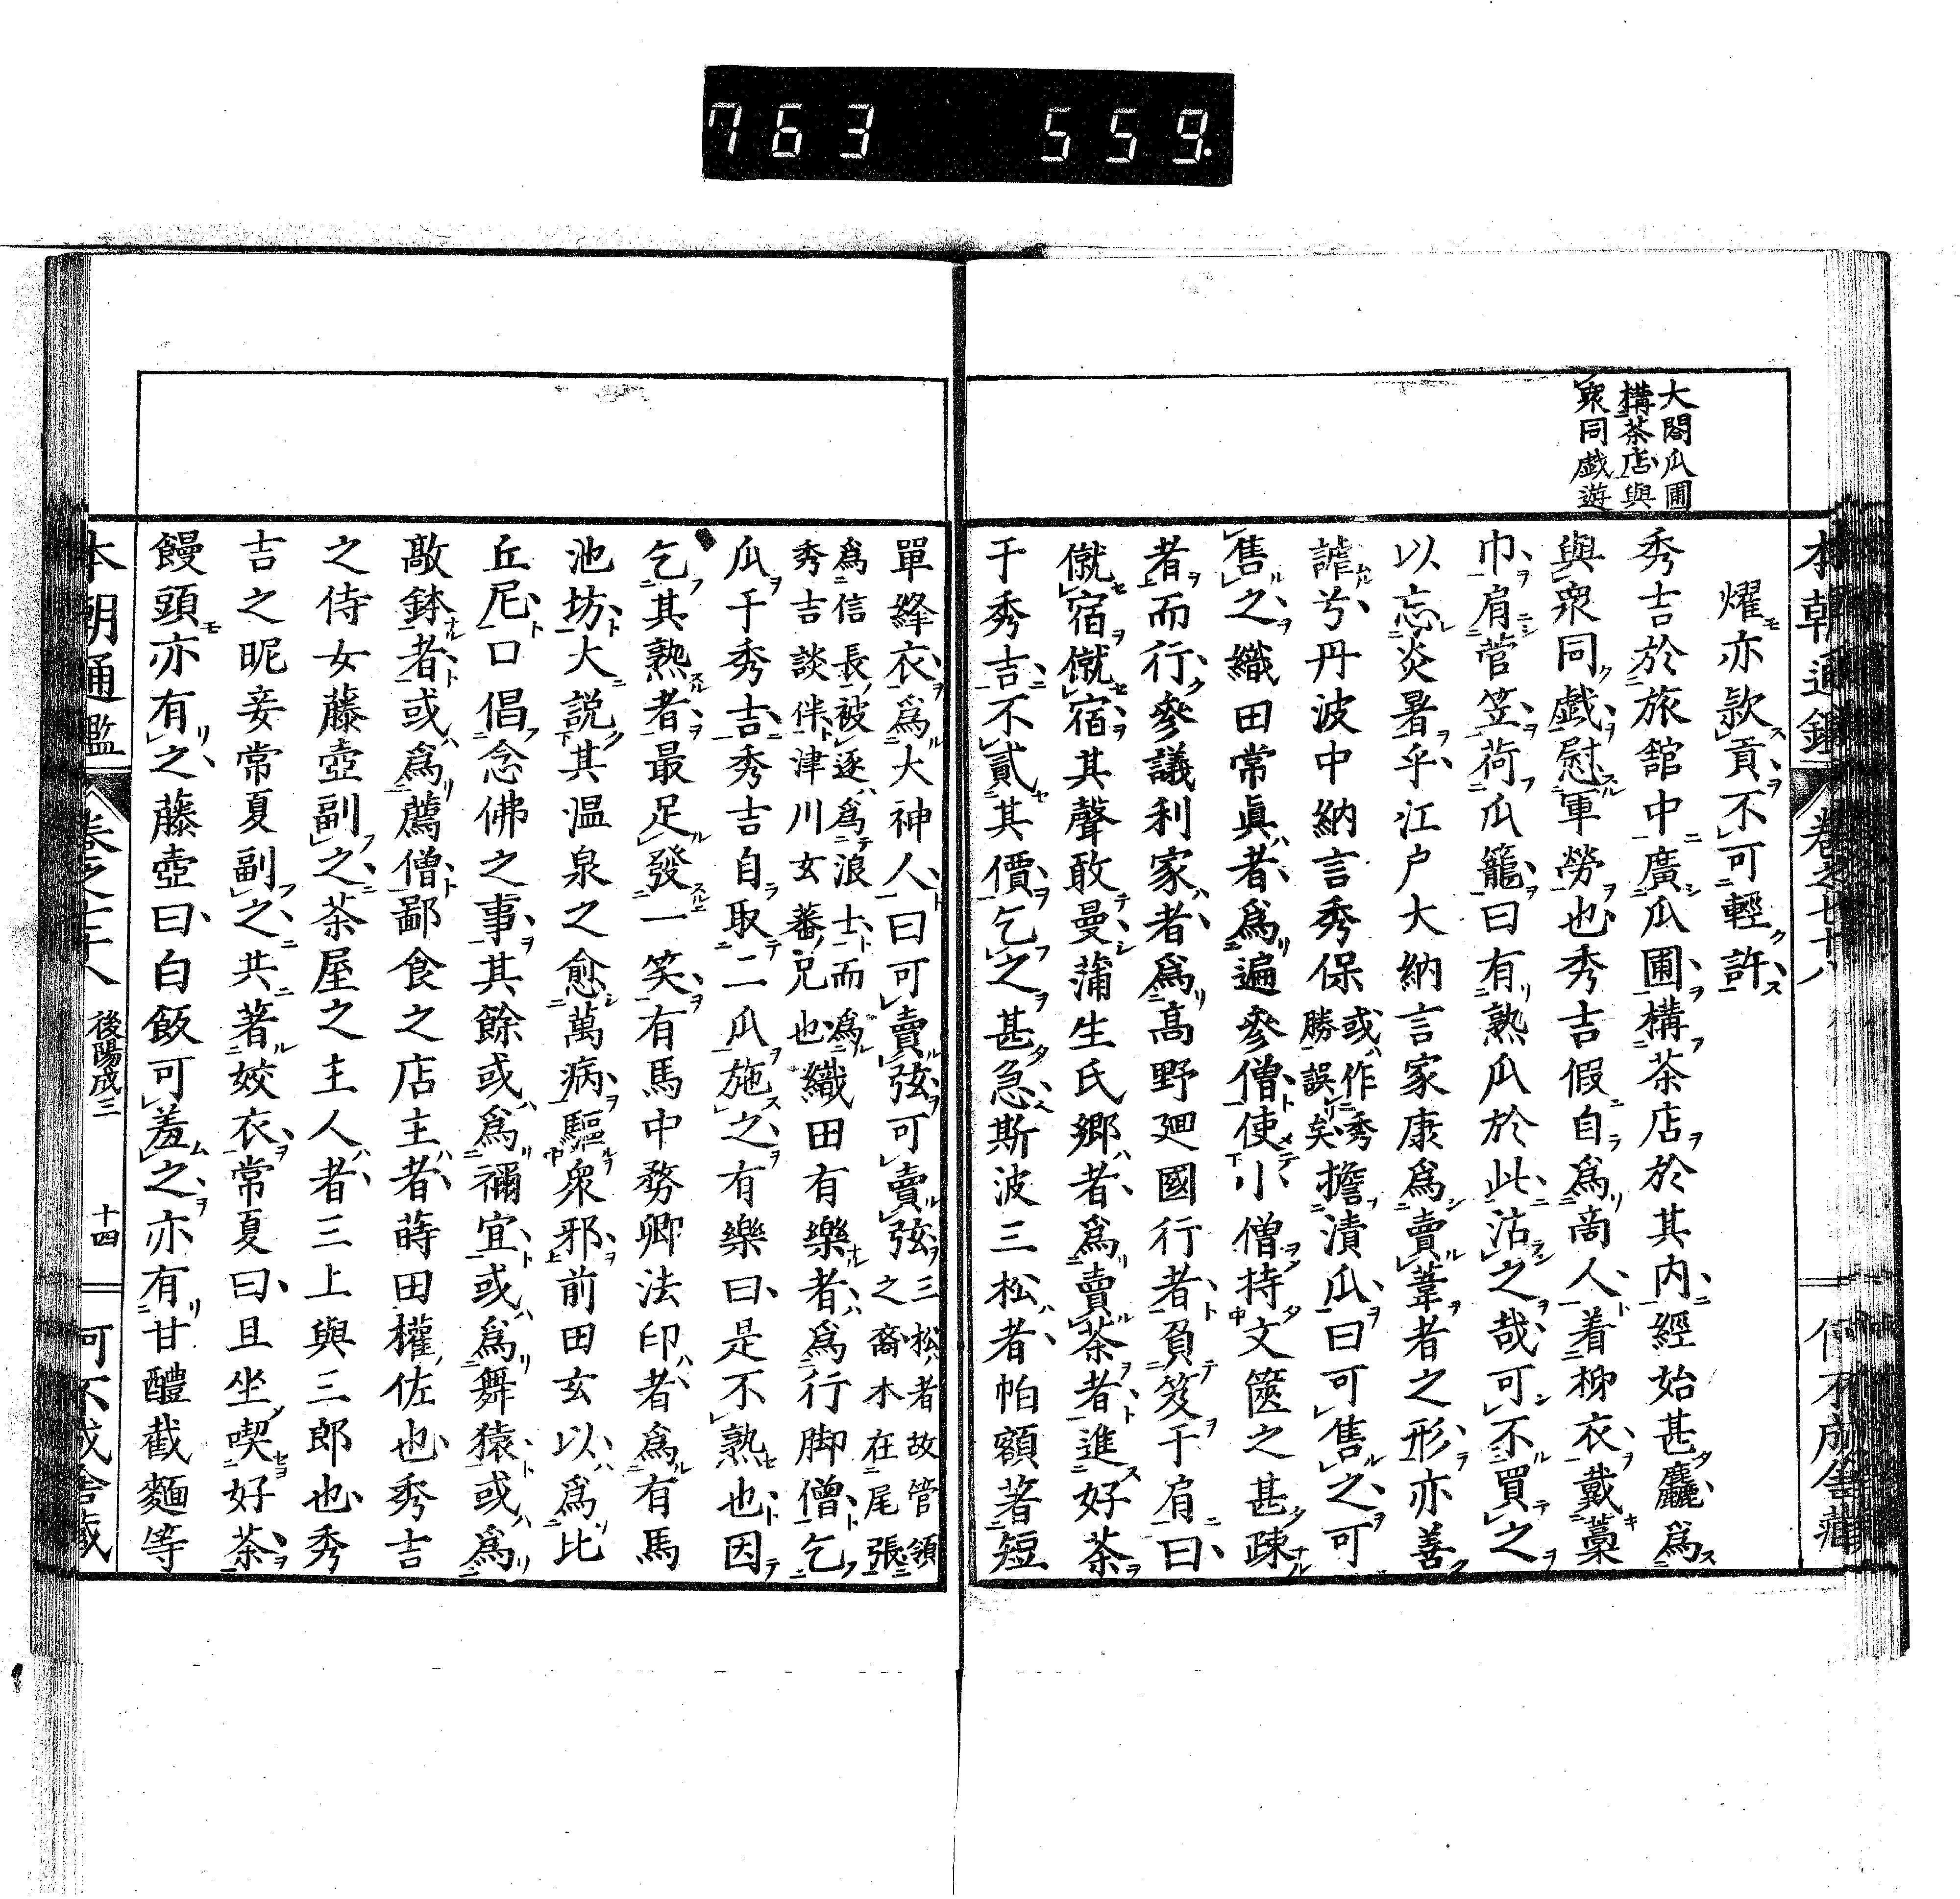 763 559.
大閤瓜圃
構茶店與
衆同戯遊
本朝通鑑 卷之七十八
燿亦款貢不可輕許
秀吉於旅舘中廣瓜圃構茶店於其内經始甚麤爲
與衆同戯慰軍勞也秀吉假自爲商人着柳衣戴藁
巾肩菅笠荷瓜籠曰有熟瓜於此沽之哉可不買之
以忘炎暑乎江戸大納言家康爲賣葦者之形亦善
謔兮丹波中納言秀保或作秀勝誤矣擔漬瓜曰可售之可
售之織田常眞者爲遍參僧使小僧持文篋之甚疎
者而行參議利家者爲髙野廻國行者負笈于肩曰
僦宿僦宿其聲敢曼蒲生氏郷者爲賣茶者進好茶
于秀吉不貳其價乞之甚急斯波三松者帕額著短
單絳衣爲大神人曰可賣弦可賣弦三松者故管領之裔木在尾張
爲信長被逐爲浪士而爲秀吉談伴津川玄蕃兄也織田有樂者爲行脚僧乞
瓜于秀吉秀吉自取二瓜施之有樂曰是不熟也因
乞其熟者最足發一笑有馬中務卿法印者爲有馬
池坊大説其温泉之愈萬病驅衆邪前田玄以爲比
丘尼口倡念佛之事其餘或爲禰宜或爲舞猿或爲
敲鉢者或爲薦僧鄙食之店主者蒔田權佐也秀吉
之侍女藤壺副之茶屋之主人者三上與三郎也秀
吉之昵妾常夏副之共著姣衣常夏曰且坐喫好茶
饅頭亦有之藤壺曰白飯可羞之亦有甘醴截麵等
本朝通鑑 卷之七十八 後陽成三 十四